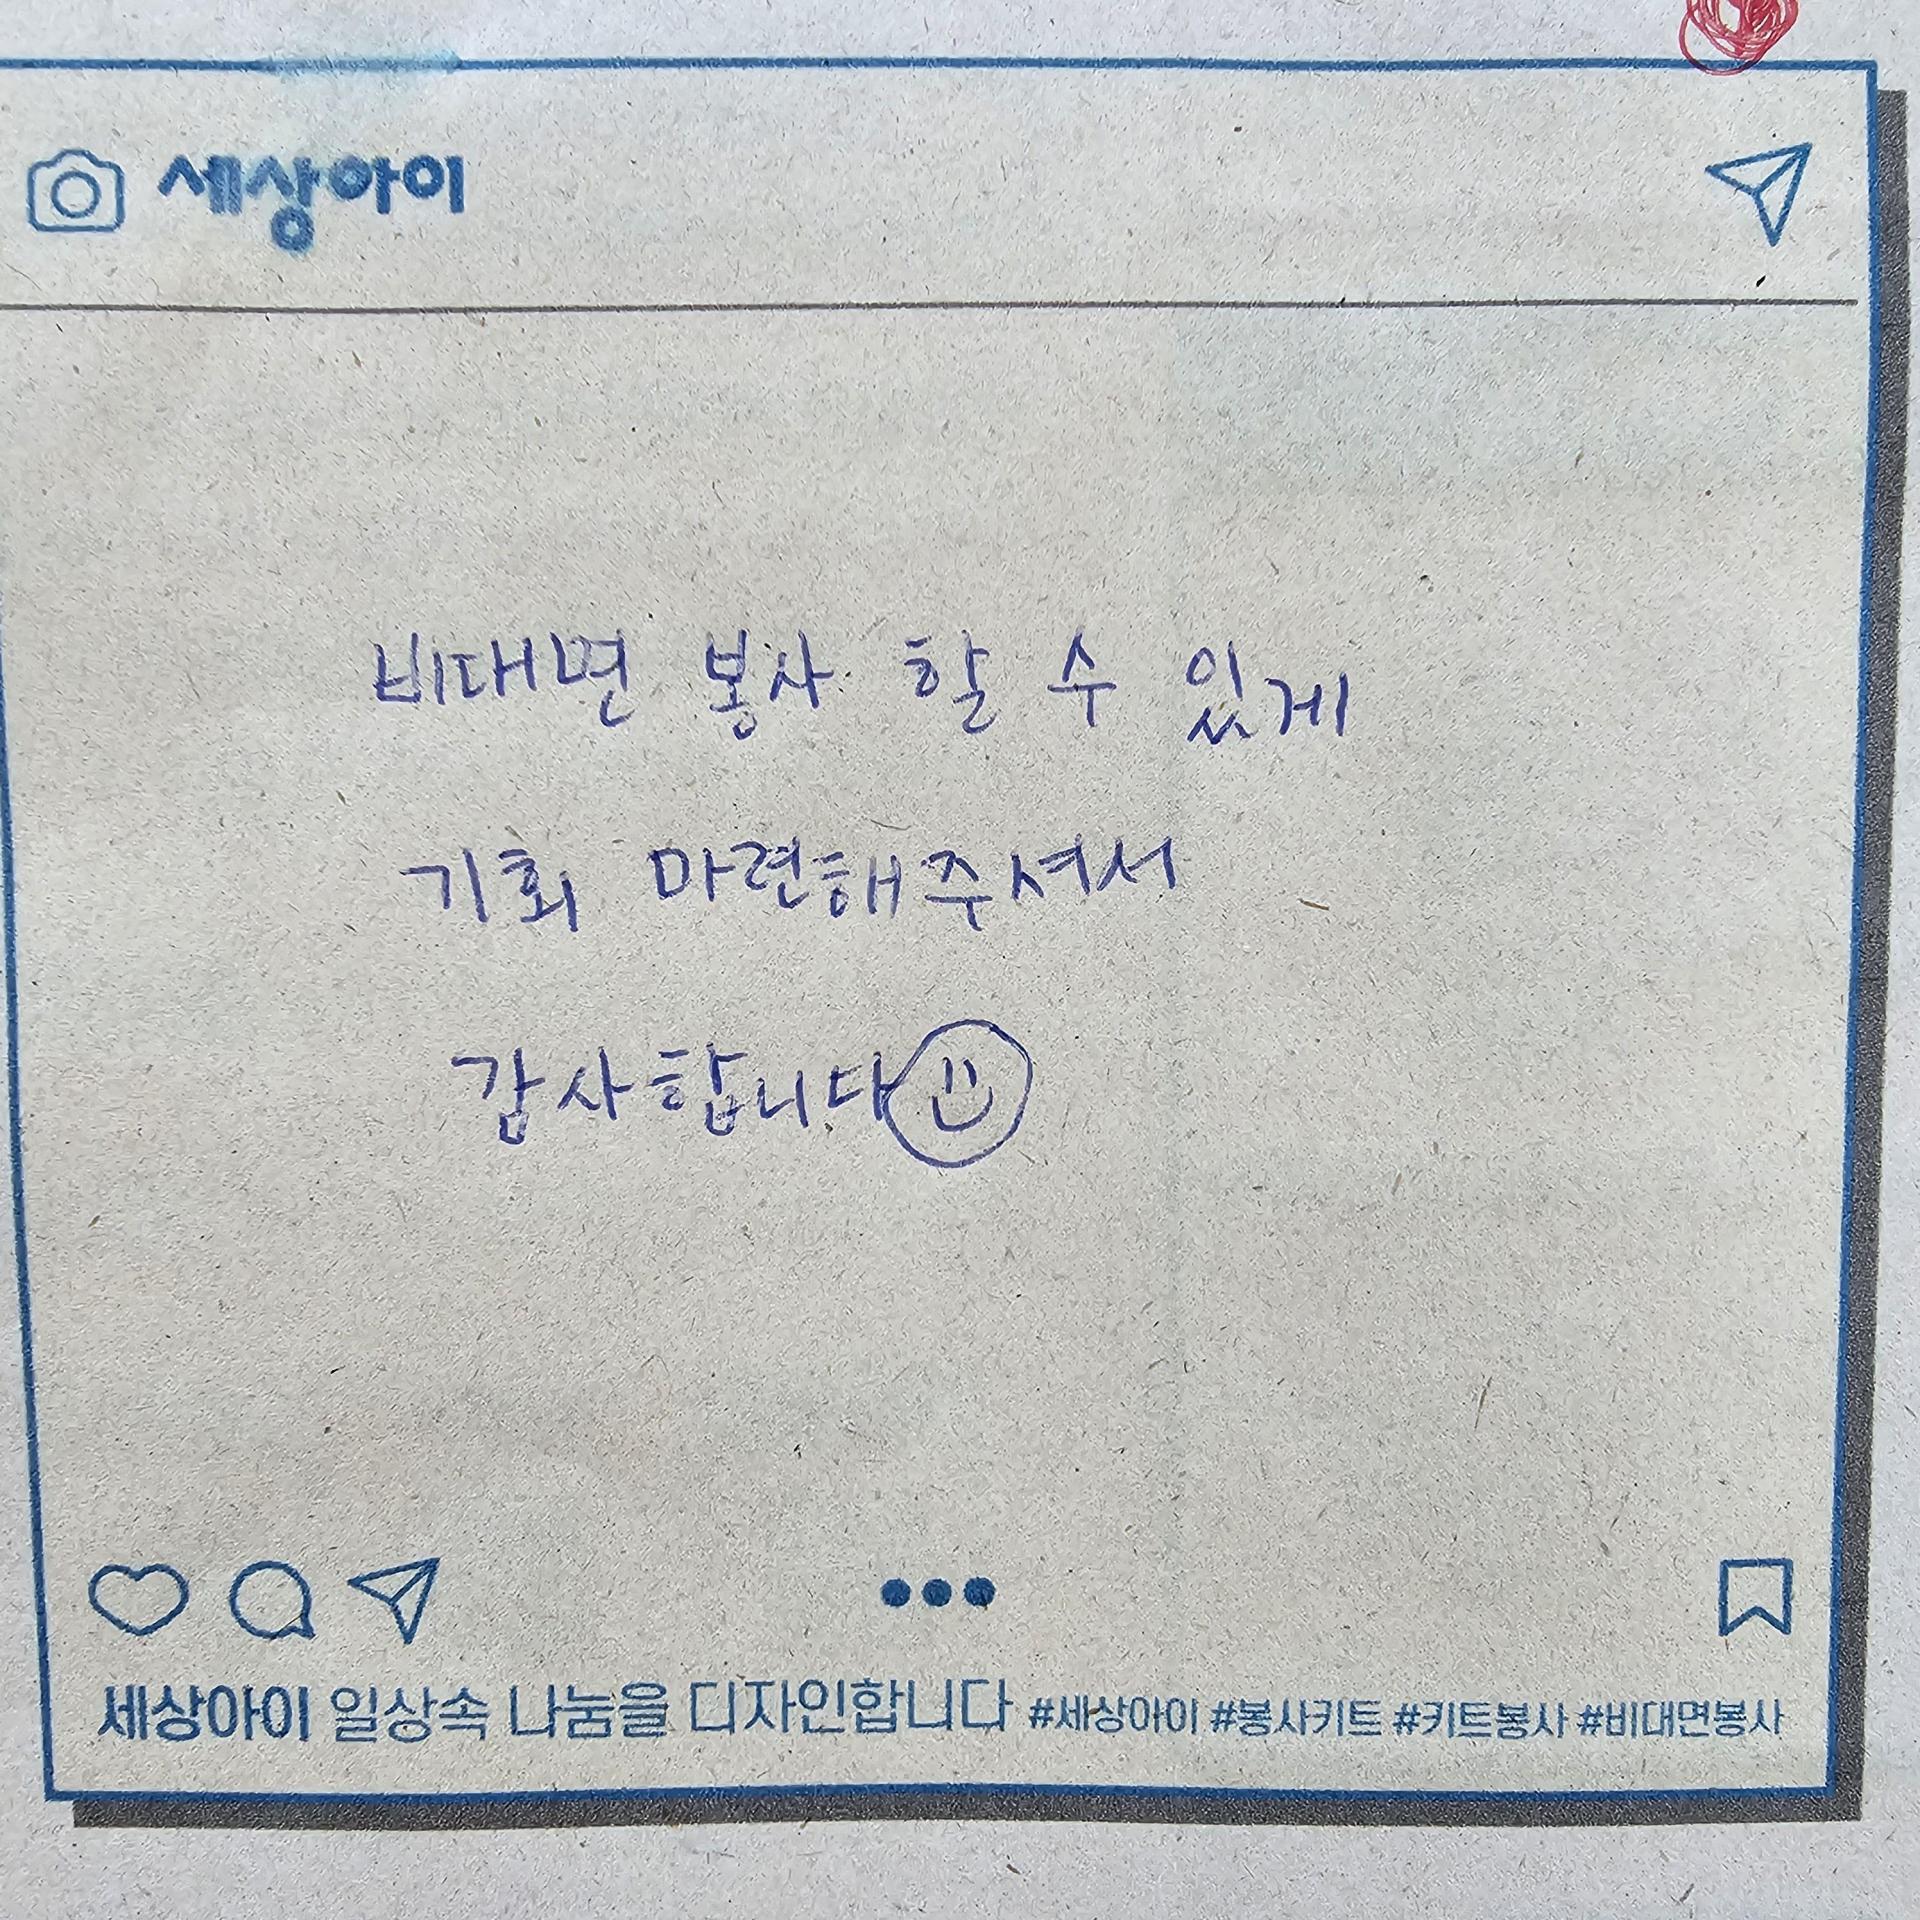 세상아이
비대면 봉사 할 수 있게
기회 마련해주셔서
감사합니다
세상아이 일상속 나눔을 디자인합니다 #세상아이 #봉사키트 #키트봉사 #비대면봉사